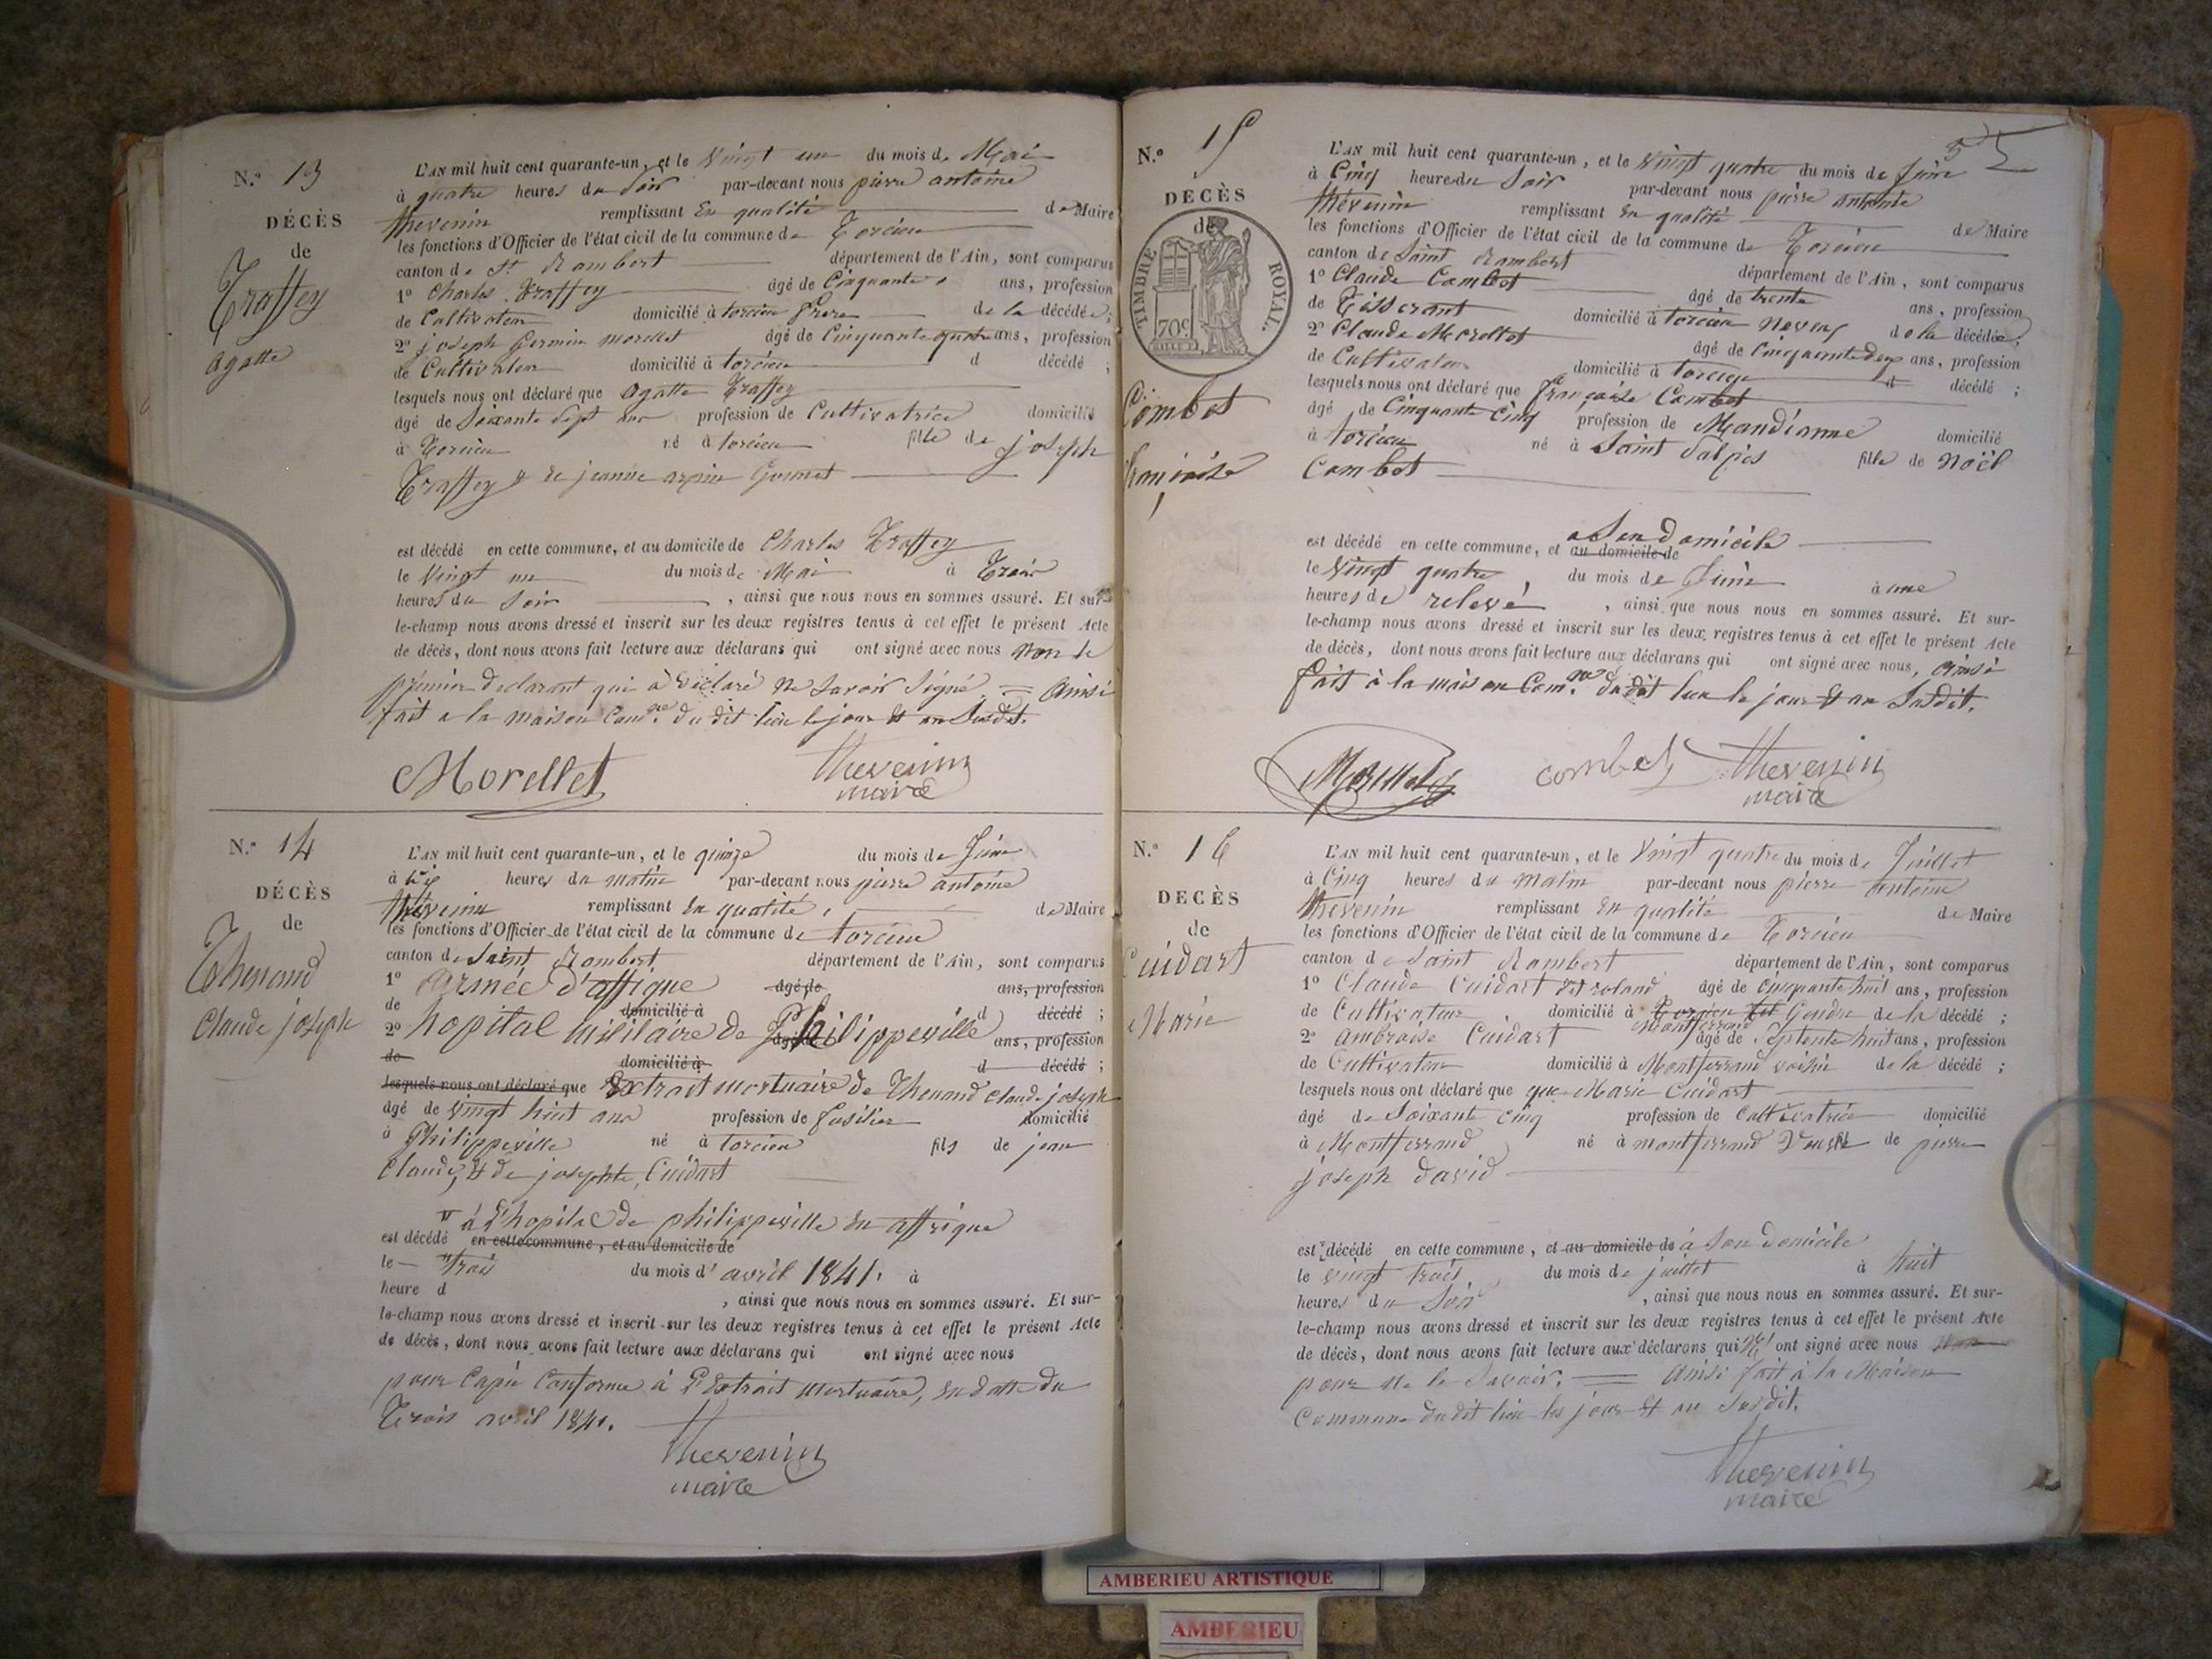 N.° 13
DÉCÈS
de
Traffey
agatte
L'AN mil huit cent quarante-un, et le Vingt un du mois de Mai
à quatre heures du Soir par-devant nous pierre antoine
thevenin remplissant En qualité de Maire
les fonctions d'Officier de l'état civil de la commune de Torcieu
canton de St Rambert département de l'Ain, sont comparus
1° Charles Traffey âgé de Cinquante ans, profession
de Cultivateur domicilié à torcieu frere de la décédée;
2° joseph Germin morellet âgé de Cinquante quatre ans, profession
de Cultivateur domicilié à torcieu d décédé ;
lesquels nous ont déclaré que agatte Traffey
âgé de Soixante Sept ans profession de Cultivatrice domicilié
à Torcieu né à torcieu fille de joseph
Traffey & de jeanne Gormet
est décédé en cette commune, et au domicile de Charles Traffey
le Vingt un du mois de Mai à Trois
heures du Soir , ainsi que nous nous en sommes assuré. Et sur-
le-champ nous avons dressé et inscrit sur les deux registres tenus à cet effet le présent Acte
de décès, dont nous avons fait lecture aux déclarans qui ont signé avec nous non le
premier declarant qui a déclaré ne Savoir Signé = ainsi
fait a la maison Comne du dit lieu le jour & an Susdit.
Morellet thevenin
maire
N.° 14
DÉCÈS
de
Thenand
Claude joseph
L'AN mil huit cent quarante-un, et le quinze du mois de Juin
à heures du matin par-devant nous pierre antoine
thevenin remplissant En qualité de Maire
les fonctions d'Officier de l'état civil de la commune de torcieu
canton de Saint Rambert département de l'Ain, sont comparus
1° armée d'affrique âgé de ans, profession
de domicilié à d décédé ;
2° hopital militaire de Philippeville ans, profession
de domicilié à d décédé ;
lesquels nous ont déclaré que Extrait mortuaire de Thenand Claude joseph
âgé de vingt huit ans profession de fusilier domicilié
à Philippeville né à torcieu fils de jean
Claude, & de josephte Cuidart
à l'hopital de philippeville en affrique
est décédé en cette commune, et au domicile de
le trois du mois d'avril 1841. à
heure d , ainsi que nous nous en sommes assuré. Et sur-
le-champ nous avons dressé et inscrit sur les deux registres tenus à cet effet le présent Acte
de décès, dont nous avons fait lecture aux déclarans qui ont signé avec nous
pour Copie Conforme à l'Extrait mortuaire, en datte du
Trois avril 1841.
thevenin
maire
55
N.° 15
DÉCÈS
de
TIMBRE ROYAL.
70c
Combet
françoise
L'AN mil huit cent quarante-un, et le Vingt quatre du mois de Juin
à Cinq heures du Soir par-devant nous pierre antoine
thevenin remplissant En qualité de Maire
les fonctions d'Officier de l'état civil de la commune de Torcieu
canton de Saint Rambert département de l'Ain, sont comparus
1° Claude Combet âgé de trente ans, profession
de Tisserant domicilié à torcieu neveux de la décédée;
2° Claude Morellet âgé de Cinquante deux ans, profession
de Cultivateur domicilié à torcieu d décédé ;
lesquels nous ont déclaré que françoise Combet
âgé de Cinquante Cinq profession de Mandianne domicilié
à torcieu né à Saint Sulpies fille de Noël
Combet
a Son Domicile
est décédé en cette commune, et au domicile de
le Vingt quatre, du mois de Juin à une
heures de relevé , ainsi que nous nous en sommes assuré. Et sur-
le-champ nous avons dressé et inscrit sur les deux registres tenus à cet effet le présent Acte
de décès, dont nous avons fait lecture aux déclarans qui ont signé avec nous, ainsi
fait à la maison Comne du dit lieu le jour & an Susdit.
Morellet combet thevenin
maire
N.° 16
DÉCÈS
de
Cuidart
Marie
L'AN mil huit cent quarante-un, et le Vingt quatre du mois de Juillet
à Cinq heures du matin par-devant nous pierre antoine
thevenin remplissant En qualité de Maire
les fonctions d'Officier de l'état civil de la commune de Torcieu
canton de Saint Rambert département de l'Ain, sont comparus
1° Claude Cuidart dit roland âgé de cinquante huit ans, profession
de Cultivateur domicilié à Torcieu Gendre de la décédé ;
montferrand
2° ambroise Cuidart âgé de Septente huit ans, profession
de Cultivateur domicilié à Montferrand voisin de la décédé ;
lesquels nous ont déclaré que que Marie Cuidart
âgé de Soixante cinq profession de Cultivatrice domicilié
à Montferrand né à montferrand Veuve de pierre
joseph David
est décédé en cette commune, et au domicile de à Son domicile
le vingt trois du mois de juillet à huit
heures du Soir , ainsi que nous nous en sommes assuré. Et sur-
le-champ nous avons dressé et inscrit sur les deux registres tenus à cet effet le présent Acte
de décès, dont nous avons fait lecture aux déclarans qui ont signé avec nous
pour ne le Savoir. = ainsi fait à la Maison
Commune du dit lieu les jour & an Susdit.
thevenin
maire
AMBERIEU ARTISTIQUE
AMBERIEU